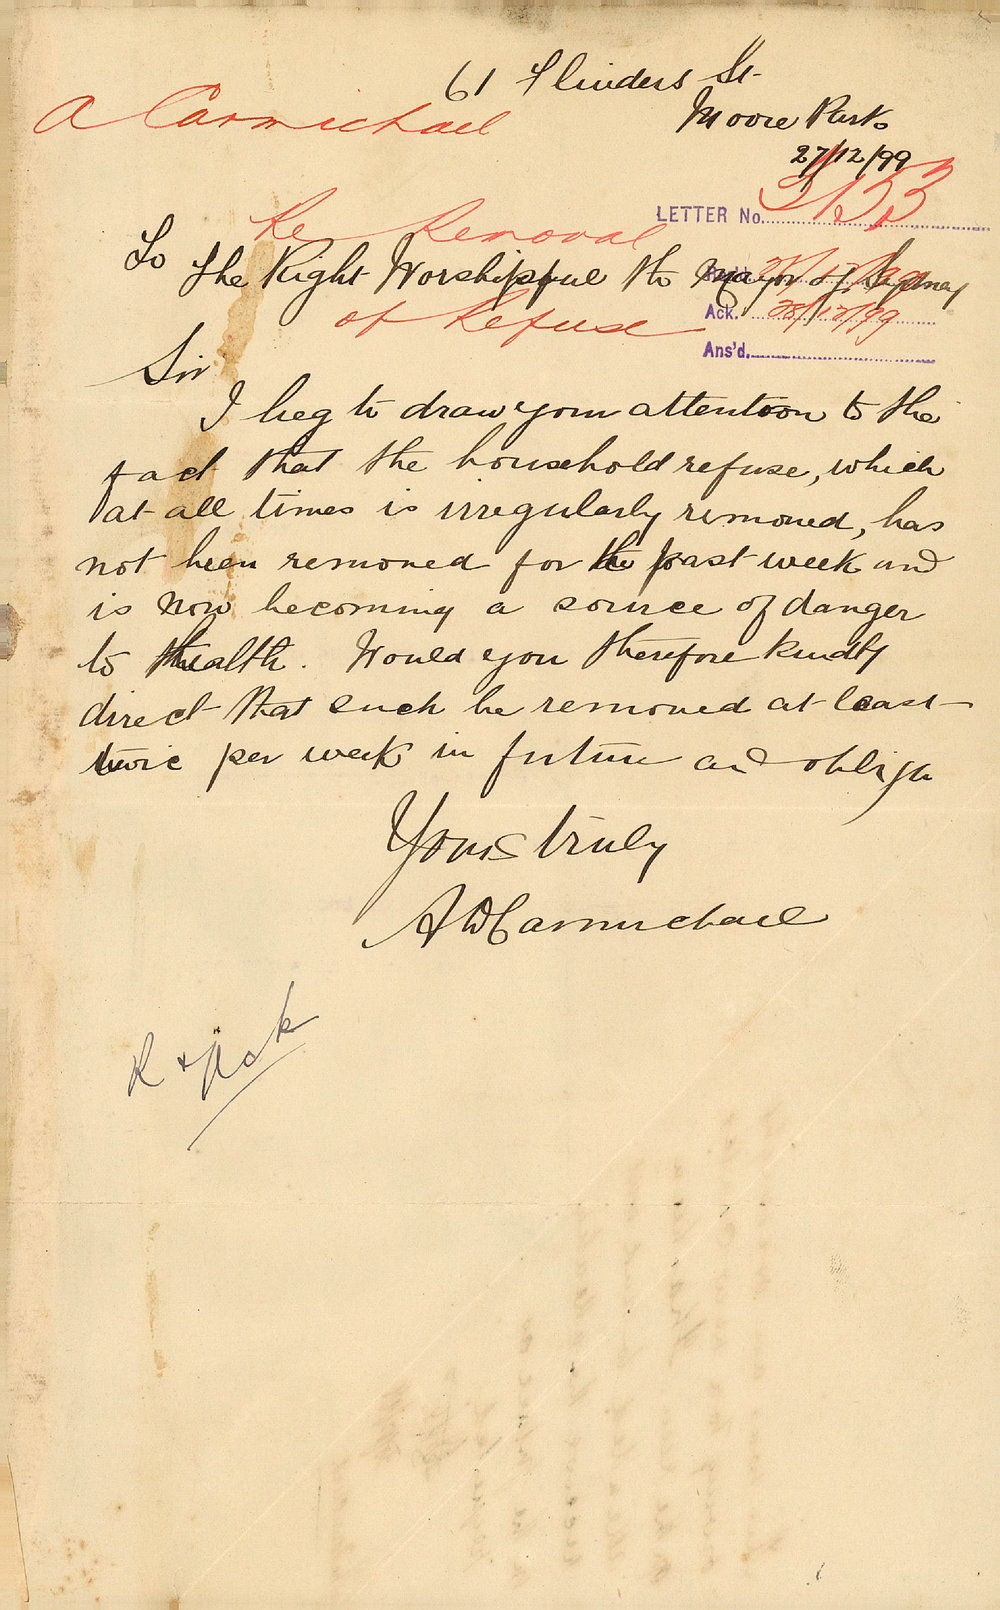 61 Flinders St
A Carmichael
Moore Park
27/12/99
LETTER No. 3153
Re Removal
To
The Right Worshipful the Mayor of Sydney
of Refuse
Ack. 28/12/99
Ans'd.
Sir
I beg to draw your attention to the
fact that the household refuse, which
at all times is irregularly removed, has
not been removed for the past week and
is now becoming a source of danger
to health. Would you therefore kindly
direct that such be removed at least
twice per week in future and oblige
Yours truly
A D Carmichael
R & Ack